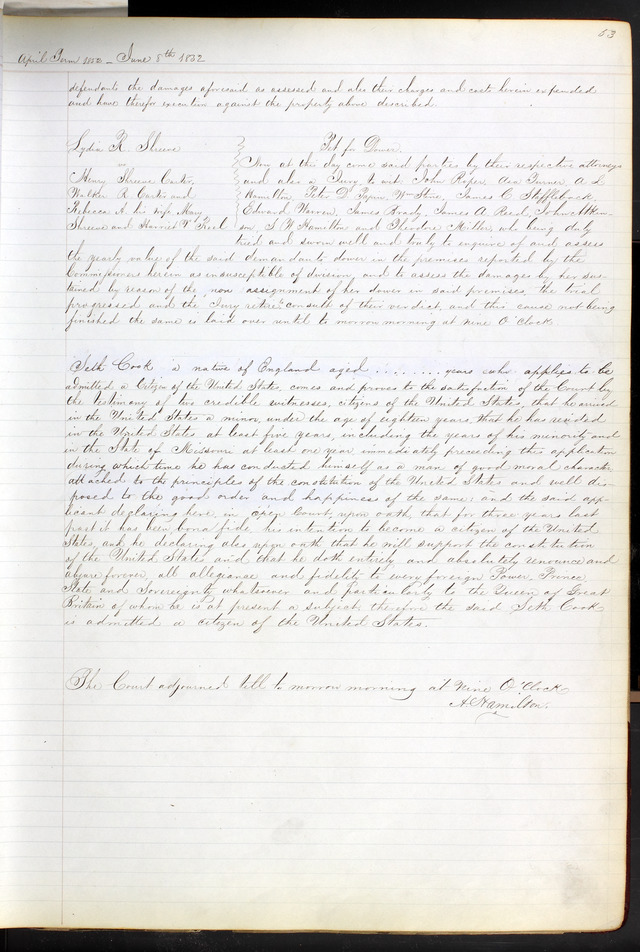 53
April Term 1852 - June 8th 1852
defendants the damages aforesaid as assessed and also their charges and costs herein expended
and have therefor execution against the property above described.
Lydia R. Shreve
vs
Henry Shreve Carter,
Walker R. Carter and
Rebecca A. his wife, Mary
Shreve and Harriet V. Reel
Pet for Dower
Now at this day come said parties by their respective attorneys
and also a Jury to wit, John Roper, Asa Turner, A L
Hamilton, Peter D Papin, Wm Stine, James C Stufflebock,
Edward Warren, James Brady, James A Beal, John Atkin-
son, S. H Hamilton and Theodore Miller who being duly
tried and sworn well and truly to enquire of and assess
the yearly value of the said demandants dower in the premises reported by the
Commissioners herein as unsusceptible of division, and to assess the damages by her sus-
tained by reason of the non assignment of her dower in said premises, the trial
progressed and the Jury retire consult of their verdict, and this cause not being
finished the same is laid over until to morrow morning at nine O'Clock
Seth Cook a native of England aged ........ years who applies to be
admitted a Citizen of the United States, comes and proves to the satisfaction of the Court by
the testimony of two credible witnesses, citizens of the United States, that he arrived
in the United States a minor, under the age of eighteen years, that he has resided
in the United States at least five years, including the years of his minority and
in the State of Missouri at least one year, immediately preceding this application
during which time he has conducted himself as a man of good moral character
attached to the principles of the constitution of the United States and well dis-
posed to the good order and happiness of the same; and the said app-
licant declaring here in open Court, upon oath, that for three years last
past it has been bona fide his intention to become a citizen of the United
States, and he declaring also upon oath that he will support the constitution
of the United States and that he doth entirely and absolutely renounce and
abjure forever all allegiance and fidelity to every foreign Power, Prince,
State and Sovereignty whatsoever and particularly to the Queen of Great
Britain of whom he is at present a subject therefore the said Seth Cook
is admitted a citizen of the United States.
The Court adjourned till to morrow morning at nine O'Clock
A. Hamilton.